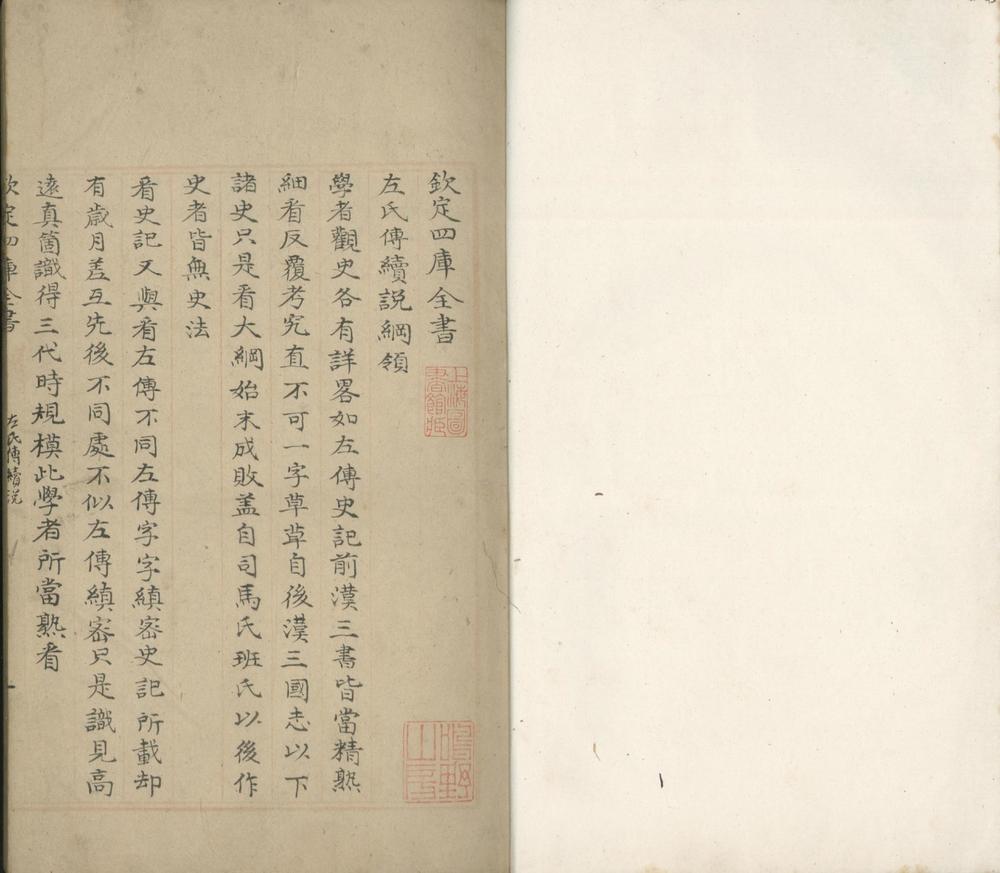 欽定四庫全書
左氏傳續説綱領
學者觀史各有詳畧如左傳史記前漢三書皆當精熟
細看反覆考究直不可一字草草自後漢三國志以下
諸史只是看大綱始末成敗盖自司馬氏班氏以後作
史者皆無史法
看史記又與看左傳不同左傳字字縝密史記所載却
有歲月差互先後不同處不似左傳縝密只是識見髙
逺真箇識得三代時規模此學者所當熟看
欽定四庫全書
左氏傳續説
一
上海圖書館藏